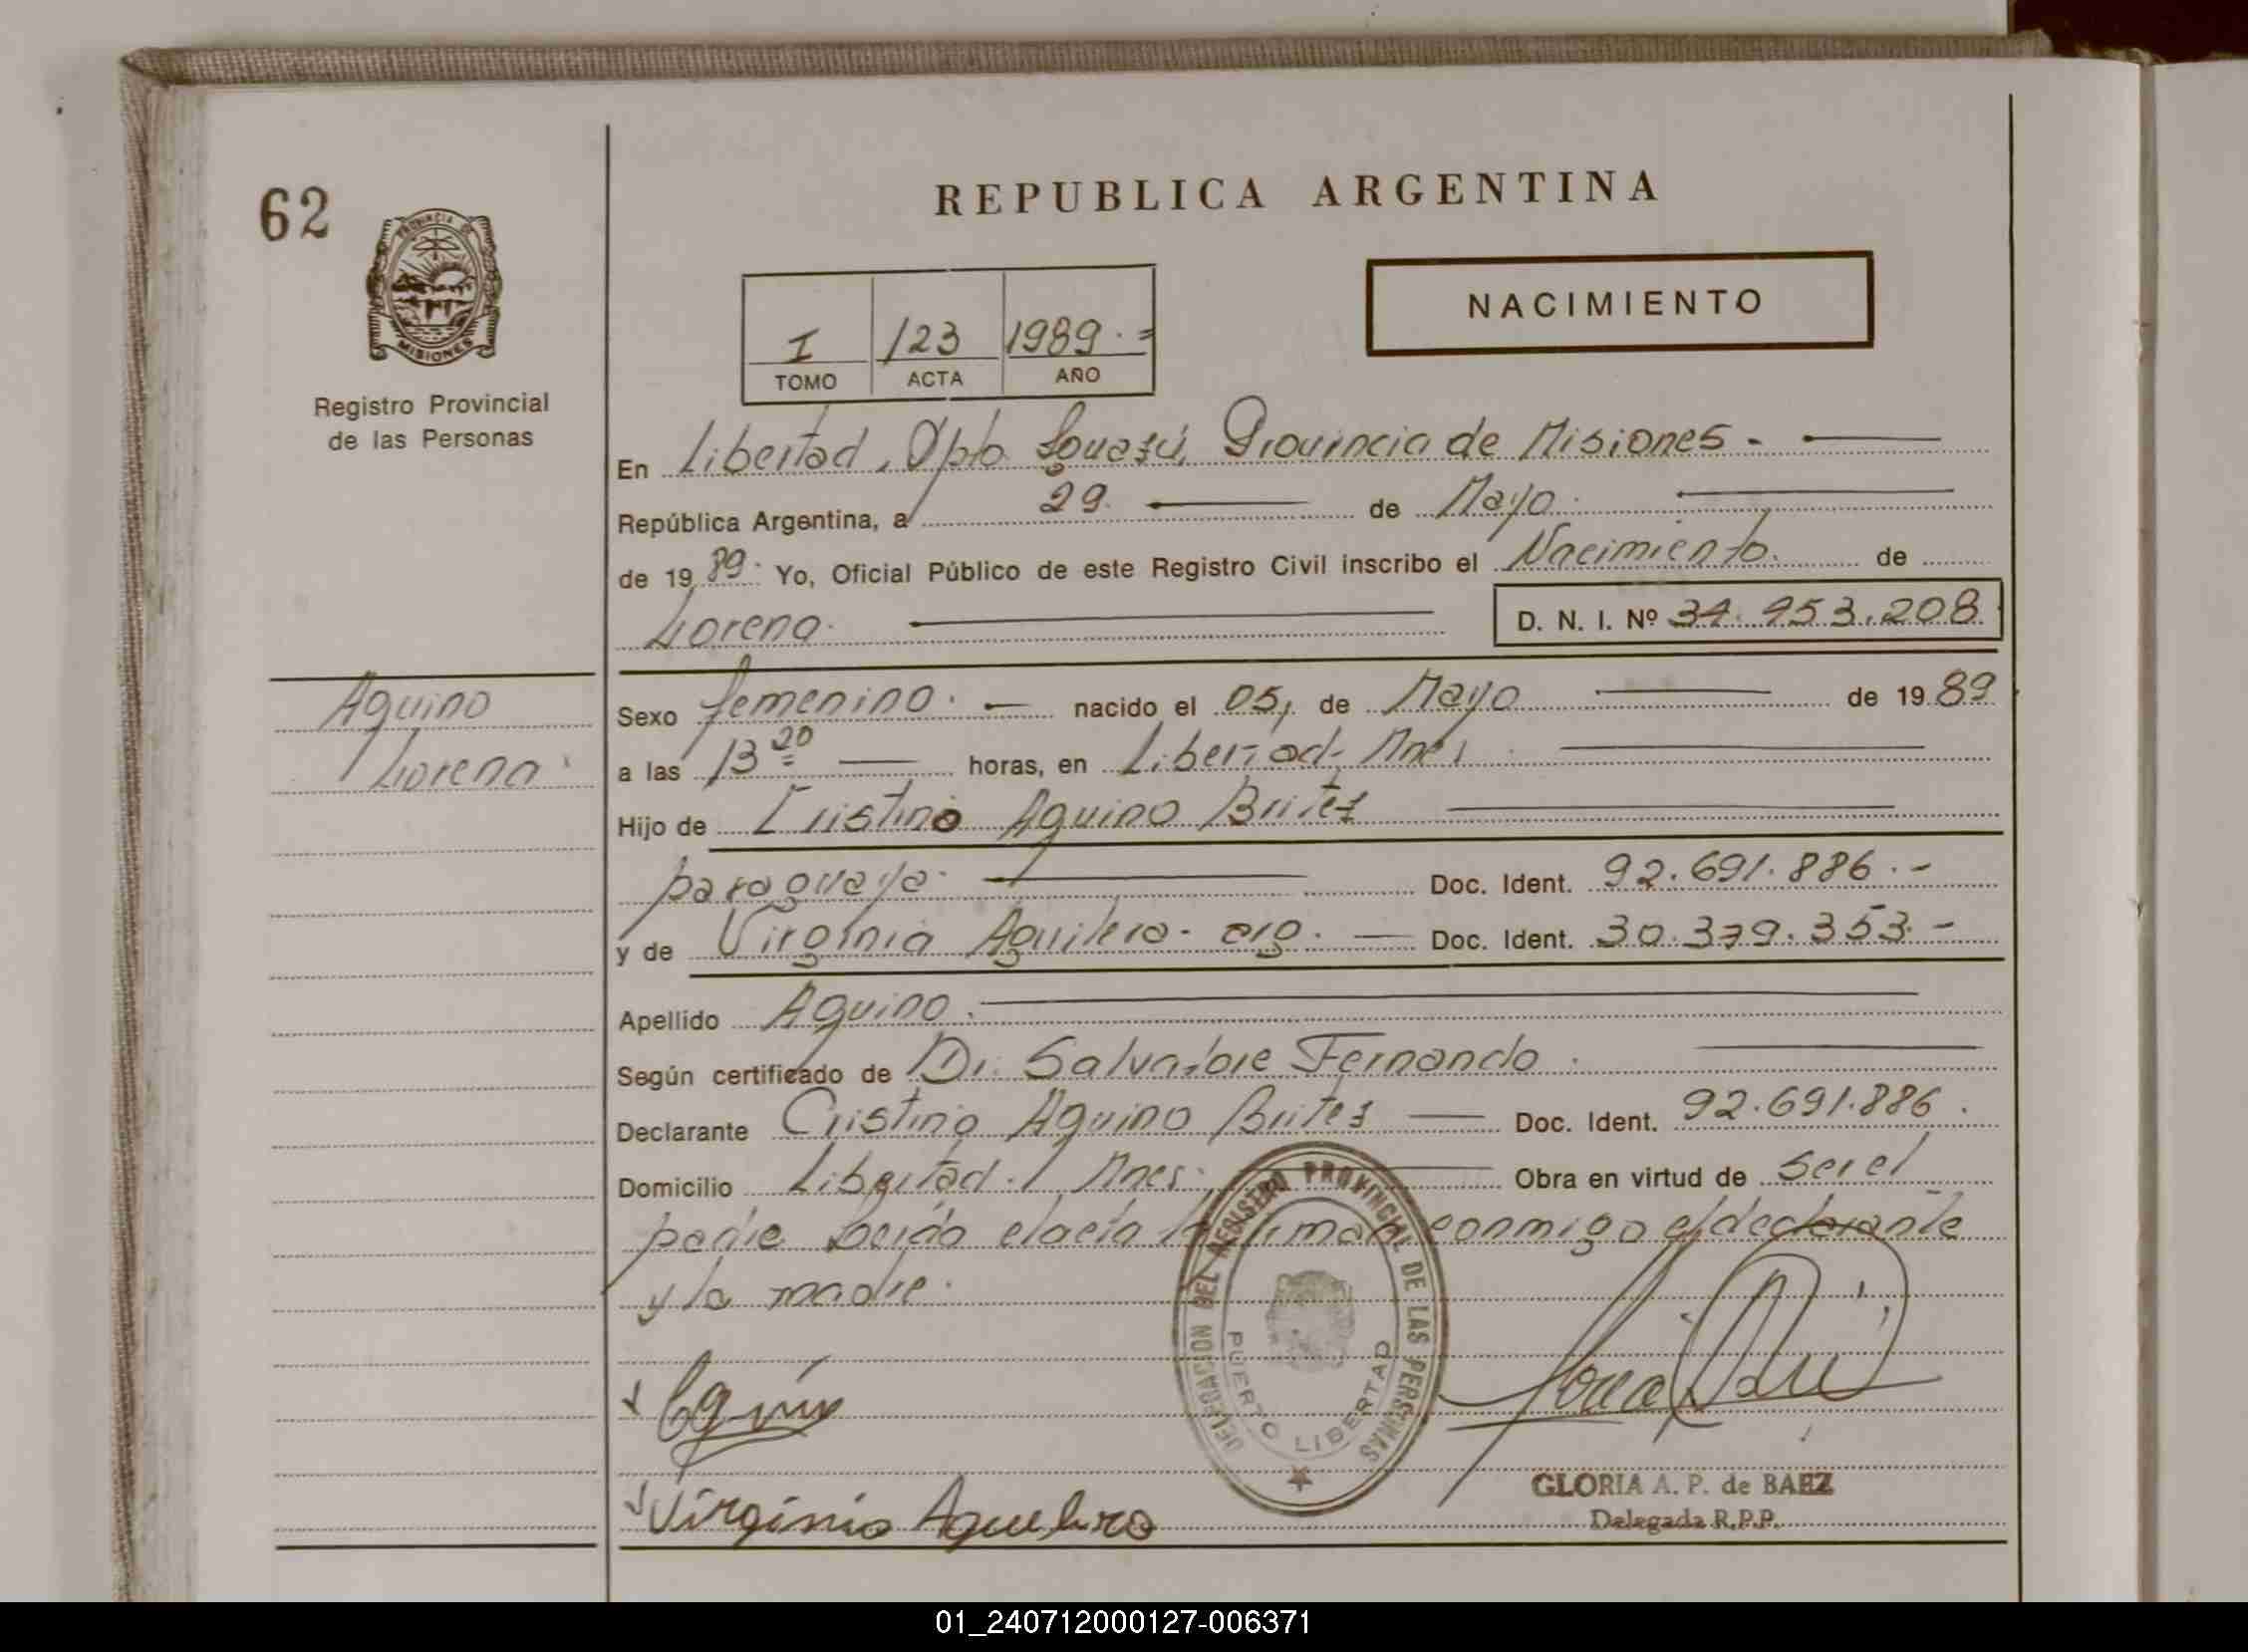 62
PROVINCIA DE
MISIONES
Registro Provincial
de las Personas
REPUBLICA ARGENTINA
NACIMIENTO
I 123 1989.=
TOMO ACTA AÑO
En Libertad, Dpto Iguazú, Provincia de Misiones.-
República Argentina, a 29. de Mayo.
de 1989. Yo, Oficial Público de este Registro Civil inscribo el Nacimiento. de
Lorena.
D. N. I. Nº 34.453.208.
Aguino
Lorena.
Sexo femenino. nacido el 05, de Mayo de 1989
a las 13 20 horas, en Libertad- Mnes.
Hijo de Cristino Aguino Brites
paraguaya. Doc. Ident. 92.691.886.-
y de Virginia Aguilera- arg. Doc. Ident. 30.379.353.-
Apellido Aguino.
Según certificado de Dr. Salvatore Fernando.
Declarante Cristino Aguino Brites Doc. Ident. 92.691.886.
Domicilio Libertad. Mnes. Obra en virtud de ser el
padre Leída el acta la firman conmigo el declarante
y la madre.
DELEGACION DEL REGISTRO PROVINCIAL DE LAS PERSONAS
PUERTO LIBERTAD
Virginia Aguilera
GLORIA A. P. de BAEZ
Delegada R.P.P.
01_240712000127-006371